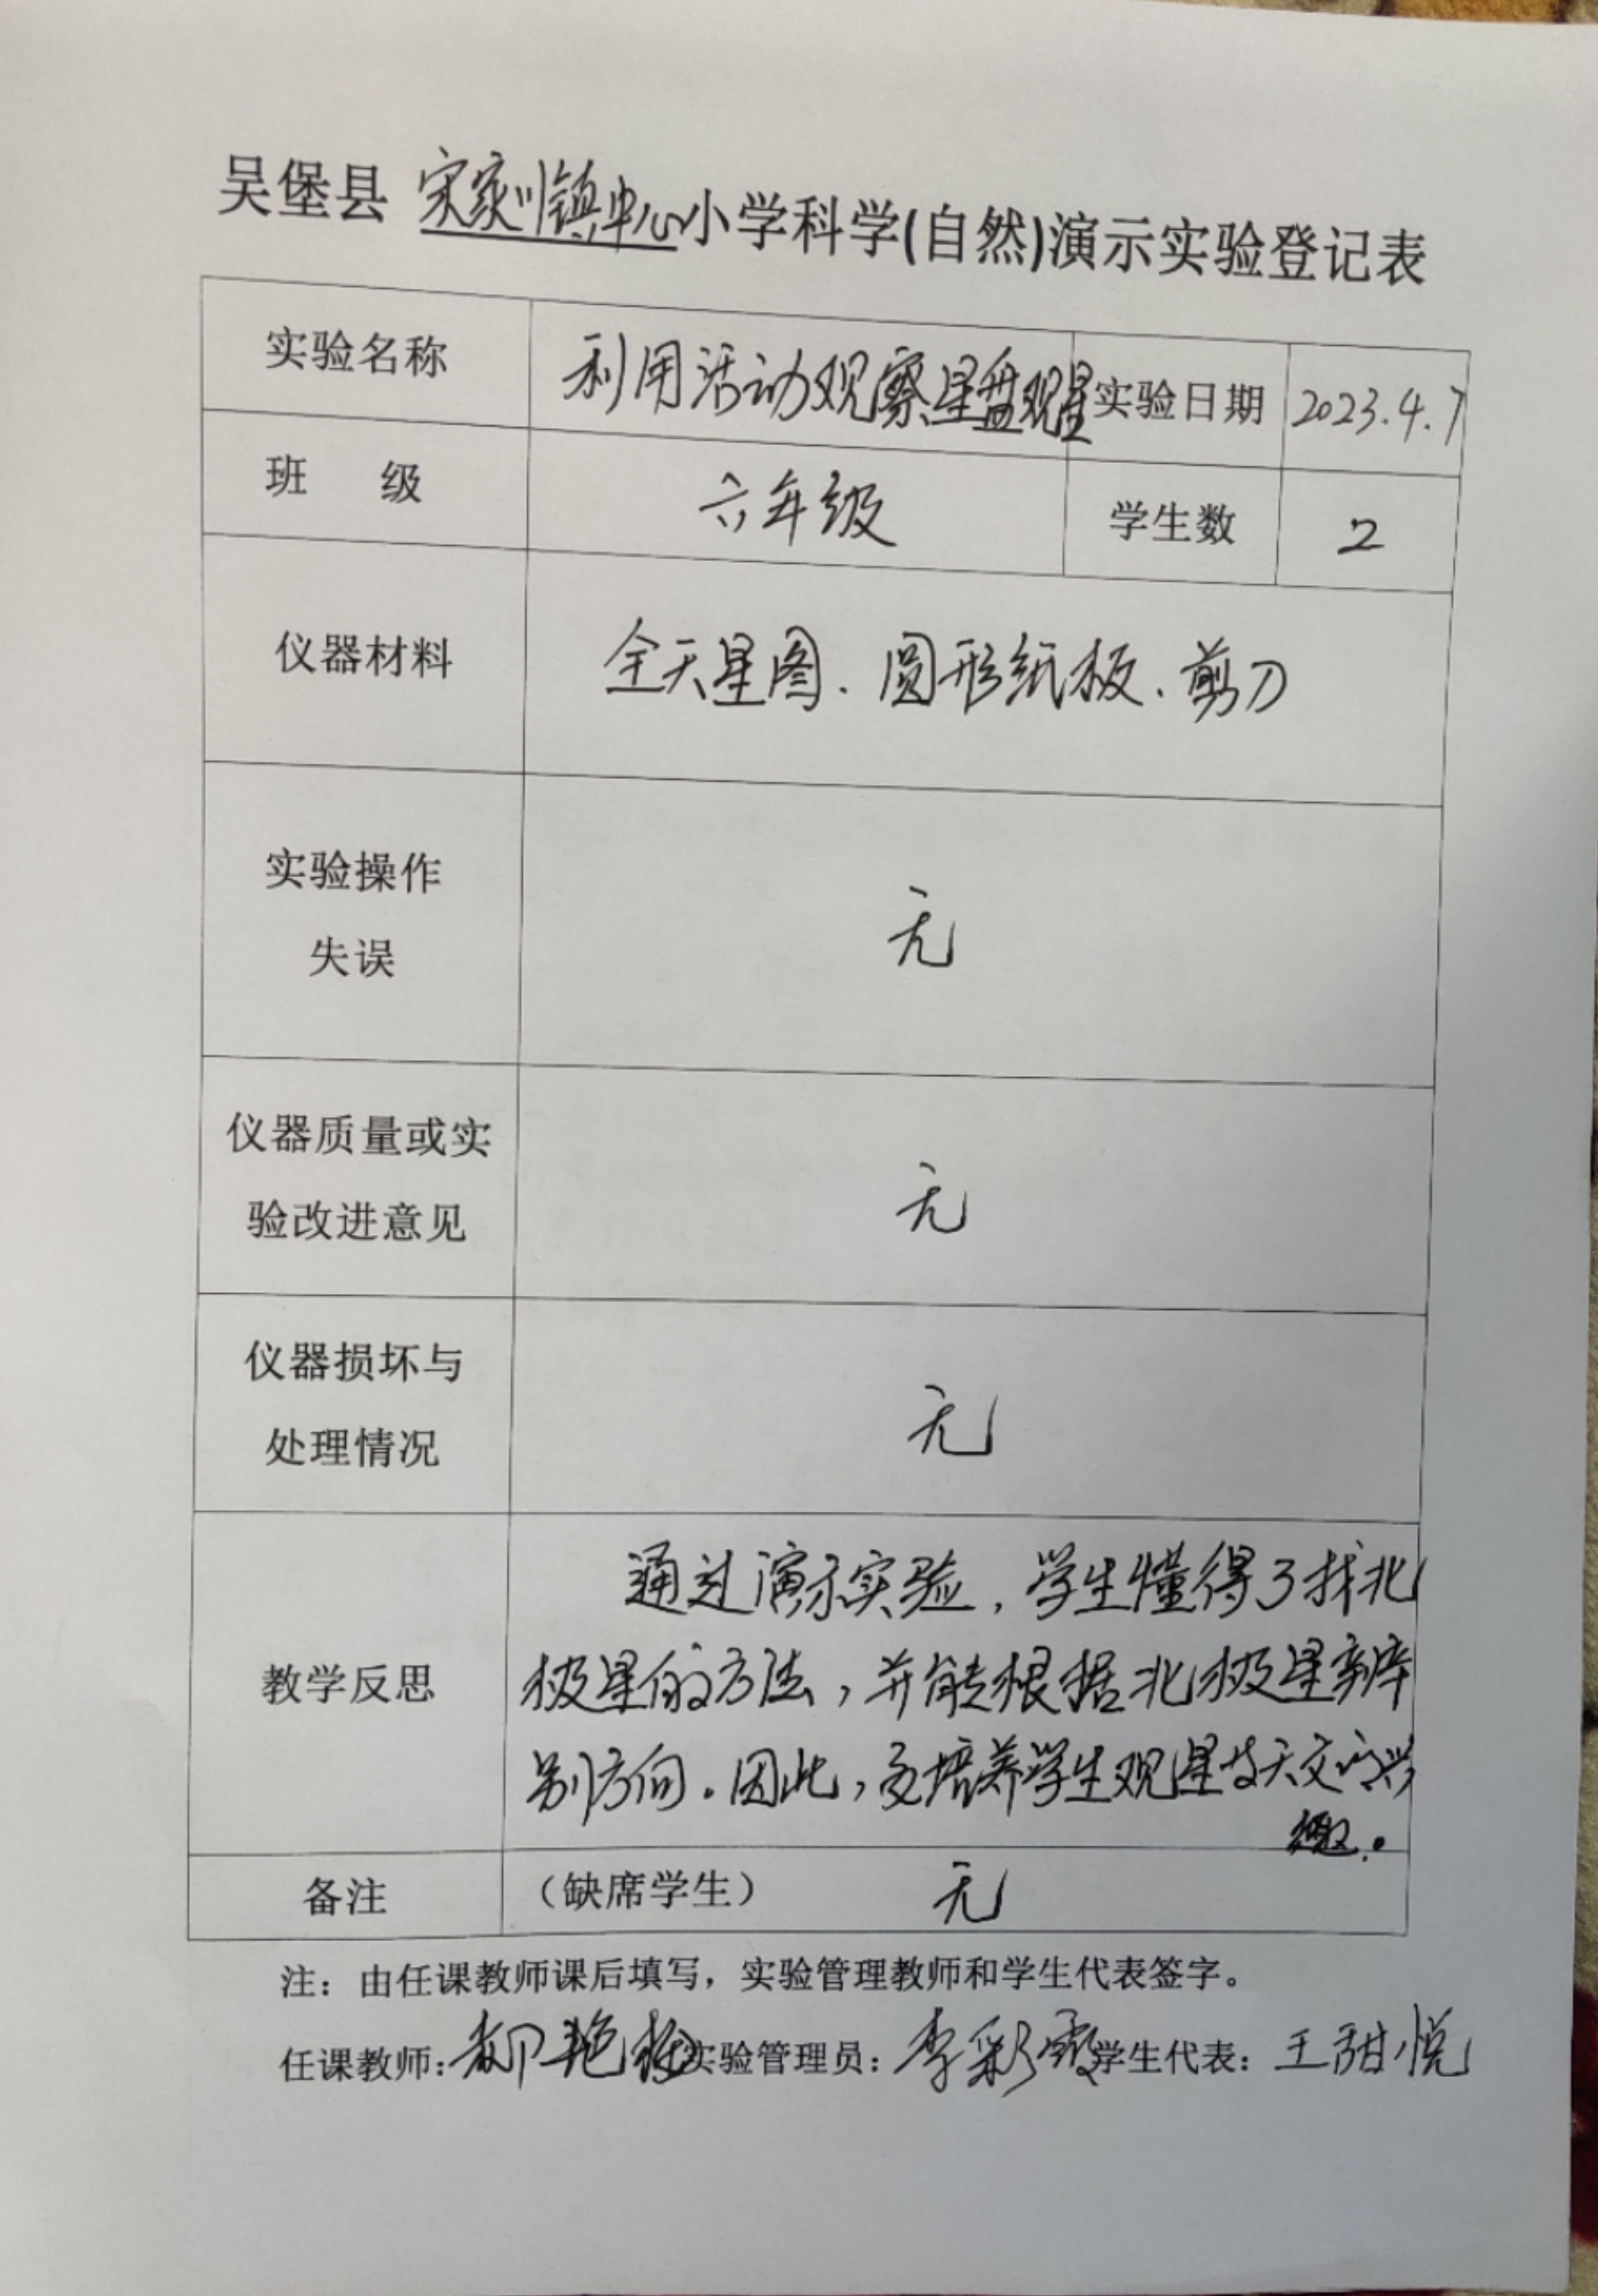 吴堡县 宋家川镇中心小学科学(自然)演示实验登记表
实验名称 利用活动观察星盘观星 实验日期 2023.4.7
班 级 六年级 学生数 2
仪器材料 全天星图、圆形纸板、剪刀
实验操作
失误 无
仪器质量或实
验改进意见 无
仪器损坏与
处理情况 无
教学反思
通过演示实验,学生懂得了找北
极星的方法,并能根据北极星辨
别方向。因此,要培养学生观星及天文的兴
趣。
备注 (缺席学生) 无
注:由任课教师课后填写,实验管理教师和学生代表签字。
任课教师: 艳 实验管理员:李彩霞 学生代表:王甜悦